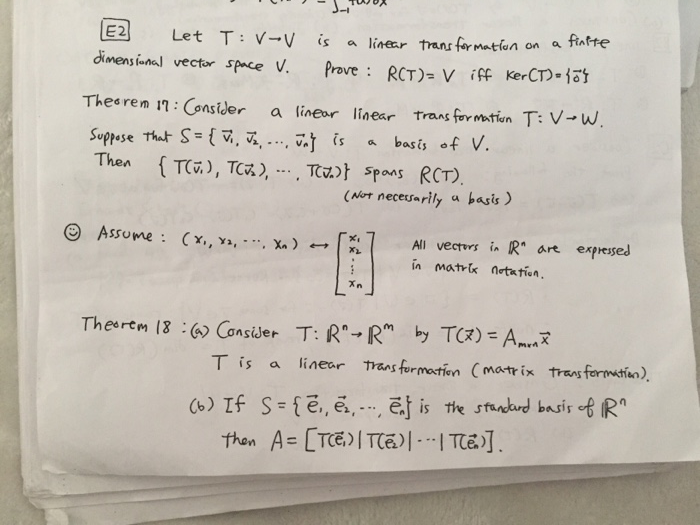 E2 Let T: V→V is a linear transformation on a finite
dimensional vector space V. Prove: R(T)=V iff Ker(T)={0⃗}
Theorem 17: Consider a linear linear transformation T: V→W.
Suppose that S={v⃗₁, v⃗₂, ..., v⃗ₙ} is a basis of V.
Then {T(v⃗₁), T(v⃗₂), ..., T(v⃗ₙ)} spans R(T).
(Not necessarily a basis)
☺ Assume: (x₁, x₂, ..., xₙ) ↔ [x₁ x₂ ⋮ xₙ] All vectors in ℝⁿ are expressed
in matrix notation.
Theorem 18: (a) Consider T: ℝⁿ→ℝᵐ by T(x⃗)=Aₘₓₙx⃗
T is a linear transformation (matrix transformation).
(b) If S={e⃗₁, e⃗₂, ..., e⃗ₙ} is the standard basis of ℝⁿ
then A=[T(e⃗₁)|T(e⃗₂)|...|T(e⃗ₙ)].